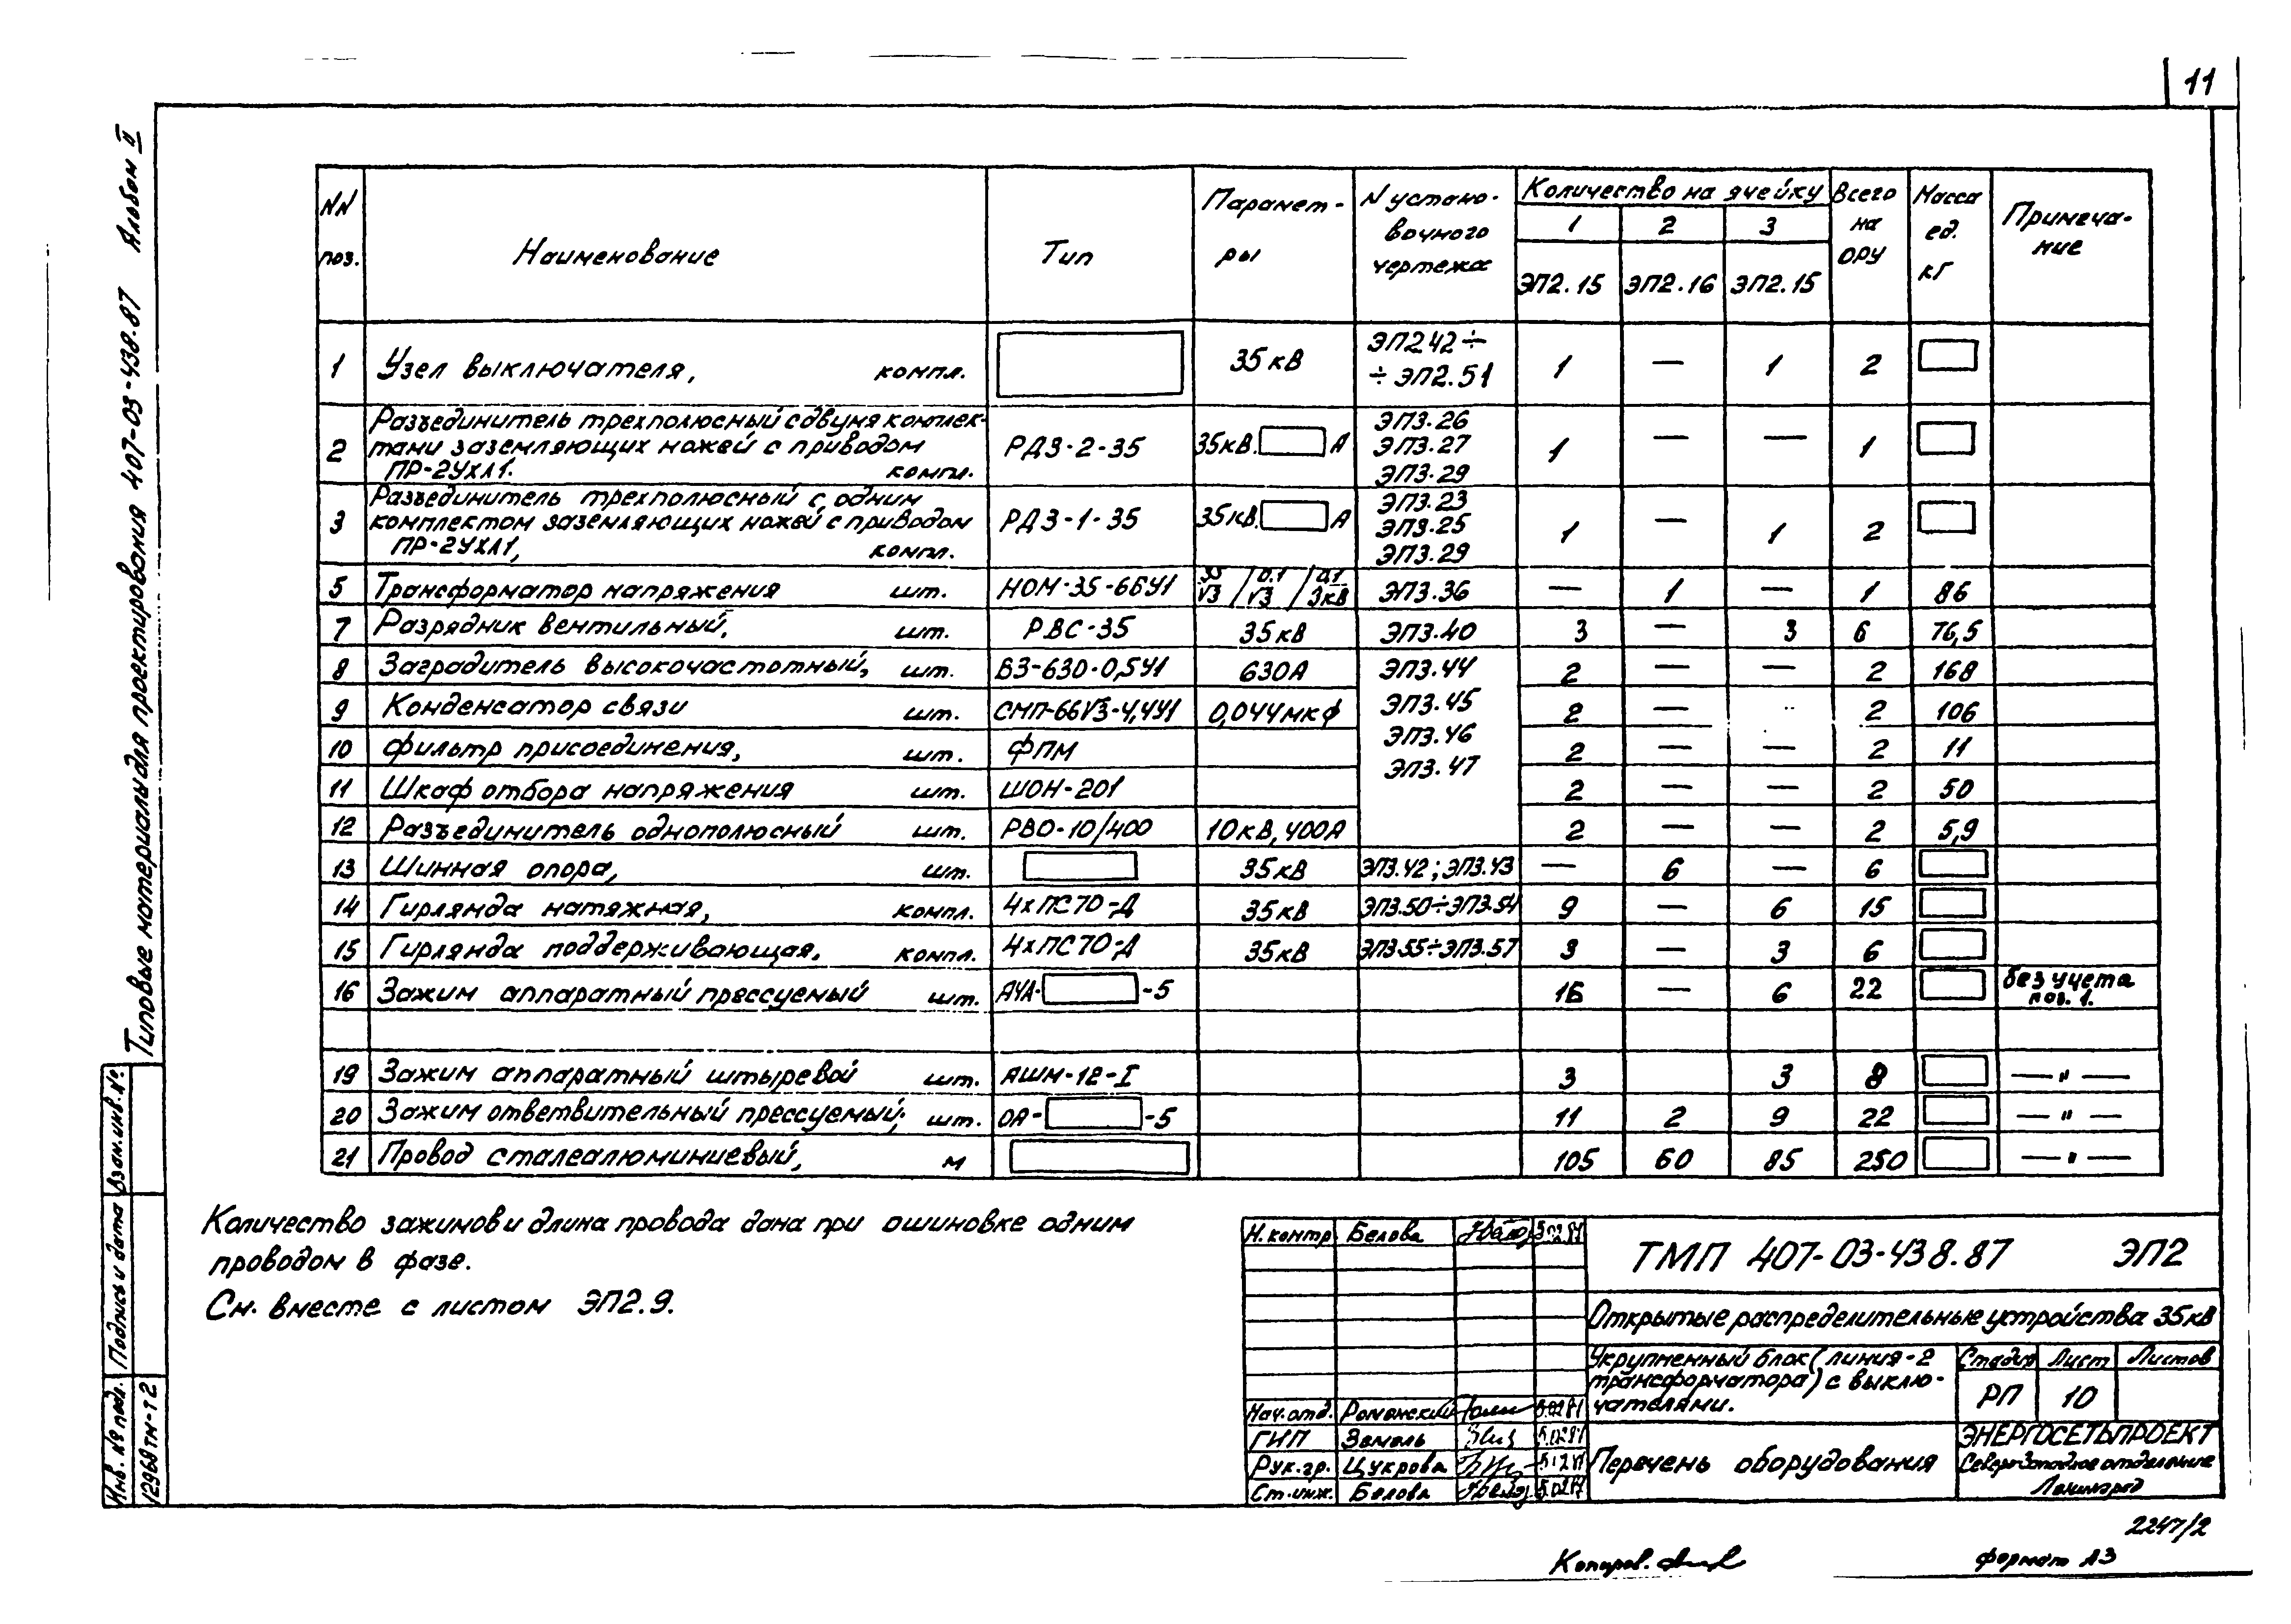 11
Типовые материалы для проектирования 407-03-438.87 Альбом II
NN поз. Наименование Тип Парамет-ры N устано-вочного чертежа Количество на ячейку Всего на ОРУ Масса ед. кг Примеча-ние
1 2 3
ЭП2.15 ЭП2.16 ЭП2.15
1 Узел выключателя, компл. 35кВ ЭП2.42÷ ÷ЭП2.51 1 — 1 2
2 Разъединитель трехполюсный с двумя комплек-
тами заземляющих ножей с приводом
ПР-2УХЛ1. компл. РДЗ-2-35 35кВ. А ЭП3.26 ЭП3.27 ЭП3.29 1 — — 1
3 Разъединитель трехполюсный с одним
комплектом заземляющих ножей с приводом
ПР-2УХЛ1, компл. РДЗ-1-35 35кВ. А ЭП3.23 ЭП3.25 ЭП3.29 1 — 1 2
5 Трансформатор напряжения шт. НОМ-35-66У1 35/√3 / 0.1/√3 / 0.1/3кВ ЭП3.36 — 1 — 1 86
7 Разрядник вентильный, шт. РВС-35 35кВ ЭП3.40 3 — 3 6 76,5
8 Заградитель высокочастотный, шт. ВЗ-630-0,5У1 630А ЭП3.44 2 — — 2 168
9 Конденсатор связи шт. СМП-66√3-4,4У1 0,044мкф ЭП3.45 2 — 2 106
10 Фильтр присоединения, шт. ФПМ ЭП3.46 2 — — 2 11
11 Шкаф отбора напряжения шт. ШОН-201 ЭП3.47 2 — — 2 50
12 Разъединитель однополюсный шт. РВО-10/400 10кВ, 400А 2 — — 2 5,9
13 Шинная опора, шт. 35кВ ЭП3.42; ЭП3.43 — 6 — 6
14 Гирлянда натяжная, компл. 4хПС70-Д 35кВ ЭП3.50÷ЭП3.54 9 — 6 15
15 Гирлянда поддерживающая, компл. 4хПС70-Д 35кВ ЭП3.55÷ЭП3.57 3 — 3 6
16 Зажим аппаратный прессуемый шт. А4А- -5 16 — 6 22 без учета поз. 1.
19 Зажим аппаратный штыревой шт. АШМ-12-I 3 3 8 — " —
20 Зажим ответвительный прессуемый; шт. ОА- -5 11 2 9 22 — " —
21 Провод сталеалюминиевый, м 105 60 85 250 — " —
Количество зажимов и длина провода дана при ошиновке одним
проводом в фазе.
См. вместе с листом ЭП2.9.
Инв. № подл. Подпись и дата Взам. инв. №.
12968тм-т2
Н. контр Белова
Нач. отд. Роменский
ГИП Земель
Рук. гр. Цукрова
Ст. инж. Белова
ТМП 407-03-438.87 ЭП2
Открытые распределительные устройства 35кВ
Укрупненный блок (линия-2
трансформатора) с выклю-
чателями.
Стадия Лист Листов
РП 10
Перечень оборудования
ЭНЕРГОСЕТЬПРОЕКТ
Северо-Западное отделение
Ленинград
2247/2
Копиров.
формат А3